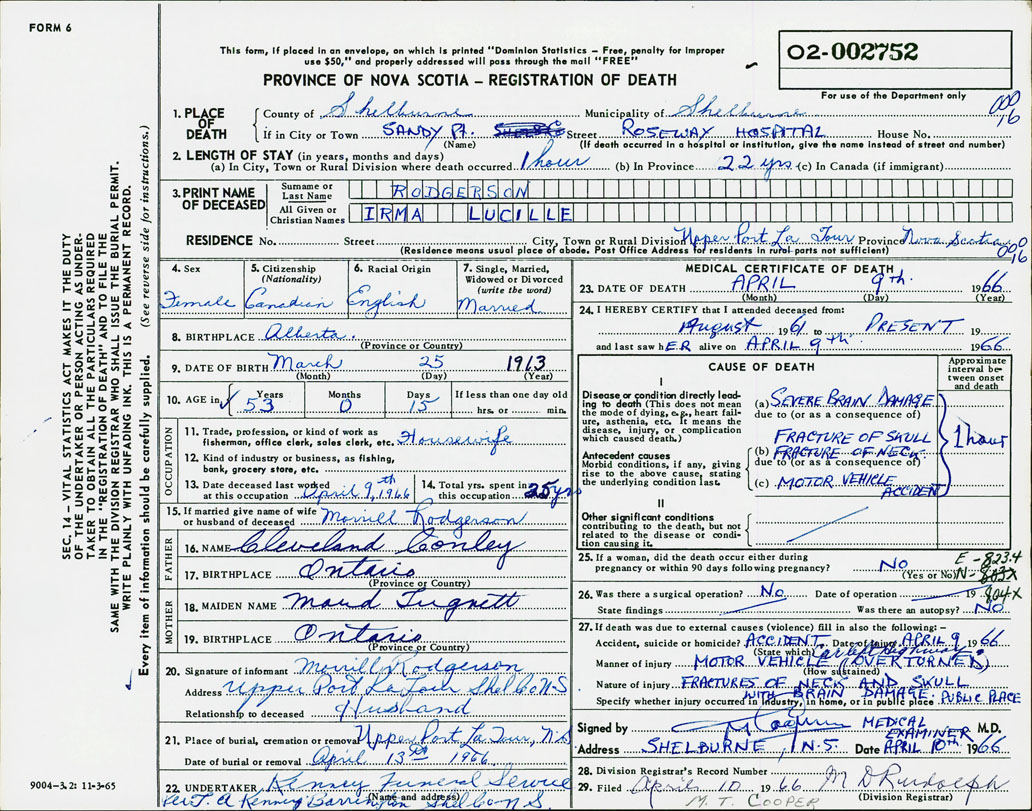 FORM 6
This form, if placed in an envelope, on which is printed "Dominion Statistics – Free, penalty for improper
use $50," and properly addressed will pass through the mail "FREE"
PROVINCE OF NOVA SCOTIA – REGISTRATION OF DEATH
O2-002752
For use of the Department only
000
16
1. PLACE OF DEATH
County of Shelburne Municipality of Shelburne
If in City or Town SANDY Pt. Street ROSEWAY HOSPITAL House No.
(Name) (If death occurred in a hospital or institution, give the name instead of street and number)
2. LENGTH OF STAY (in years, months and days)
(a) In City, Town or Rural Division where death occurred 1 hour (b) In Province 22 yrs (c) In Canada (if immigrant)
3. PRINT NAME OF DECEASED
Surname or Last Name RODGERSON
All Given or Christian Names IRMA LUCILLE
RESIDENCE No. Street City, Town or Rural Division Upper Port La Tour Province Nova Scotia
(Residence means usual place of abode. Post Office Address for residents in rural parts not sufficient)
000
16
4. Sex Female
5. Citizenship (Nationality) Canadian
6. Racial Origin English
7. Single, Married, Widowed or Divorced (write the word) Married
8. BIRTHPLACE Alberta.
(Province or Country)
9. DATE OF BIRTH March 25 1913
(Month) (Day) (Year)
10. AGE in Years 53 Months 0 Days 15 If less than one day old hrs. or min.
OCCUPATION
11. Trade, profession, or kind of work as
fisherman, office clerk, sales clerk, etc. Housewife
12. Kind of industry or business, as fishing,
bank, grocery store, etc.
13. Date deceased last worked at this occupation April 9th, 1966
14. Total yrs. spent in this occupation 25 yrs
15. If married give name of wife
or husband of deceased Morrill Rodgerson
FATHER
16. NAME Cleveland Conley
17. BIRTHPLACE Ontario
(Province or Country)
MOTHER
18. MAIDEN NAME Maud Tugnett
19. BIRTHPLACE Ontario
(Province or Country)
20. Signature of informant Morrill Rodgerson
Address Upper Port La Tour Shel Co N S
Relationship to deceased Husband
21. Place of burial, cremation or removal Upper Port La Tour, N.S
Date of burial or removal April 13th 1966.
22. UNDERTAKER Kenney Funeral Service
(Name and address)
Per J. A Kenney Barrington Shel Co N S.
MEDICAL CERTIFICATE OF DEATH
23. DATE OF DEATH APRIL 9th. 1966
(Month) (Day) (Year)
24. I HEREBY CERTIFY that I attended deceased from:
August 1961 to PRESENT 19
and last saw hER alive on APRIL 9th. 1966
CAUSE OF DEATH
Approximate interval between onset and death
I
Disease or condition directly leading to death (This does not mean the mode of dying, e.g., heart failure, asthenia, etc. It means the disease, injury, or complication which caused death.)
(a) SEVERE BRAIN DAMAGE
due to (or as a consequence of)
FRACTURE OF SKULL
1 hour
Antecedent causes
Morbid conditions, if any, giving rise to the above cause, stating the underlying condition last.
(b) FRACTURE OF NECK.
due to (or as a consequence of)
(c) MOTOR VEHICLE ACCIDENT
II
Other significant conditions
contributing to the death, but not related to the disease or condition causing it.
25. If a woman, did the death occur either during
pregnancy or within 90 days following pregnancy? NO
(Yes or No)
E - 823.4
N - 803X
804X
26. Was there a surgical operation? No Date of operation 19
State findings Was there an autopsy? NO
27. If death was due to external causes (violence) fill in also the following:–
Accident, suicide or homicide? ACCIDENT Date of injury APRIL 9 1966
(State which)
Manner of injury MOTOR VEHICLE (OVERTURNED)
(How sustained)
Nature of injury FRACTURES OF NECK AND SKULL
WITH BRAIN DAMAGE.
Specify whether injury occurred in industry, in home, or in public place PUBLIC PLACE
Signed by MEDICAL EXAMINER M.D.
Address SHELBURNE, N.S. Date APRIL 10th. 1966
28. Division Registrar's Record Number
29. Filed April 10 1966 M D Rudolph
M. T. COOPER (Division Registrar)
SEC. 14 – VITAL STATISTICS ACT MAKES IT THE DUTY
OF THE UNDERTAKER OR PERSON ACTING AS UNDER-
TAKER TO OBTAIN ALL THE PARTICULARS REQUIRED
IN THE "REGISTRATION OF DEATH" AND TO FILE THE
SAME WITH THE DIVISION REGISTRAR WHO SHALL ISSUE THE BURIAL PERMIT.
WRITE PLAINLY WITH UNFADING INK. THIS IS A PERMANENT RECORD.
Every item of information should be carefully supplied. (See reverse side for instructions.)
9004–3.2: 11-3-65